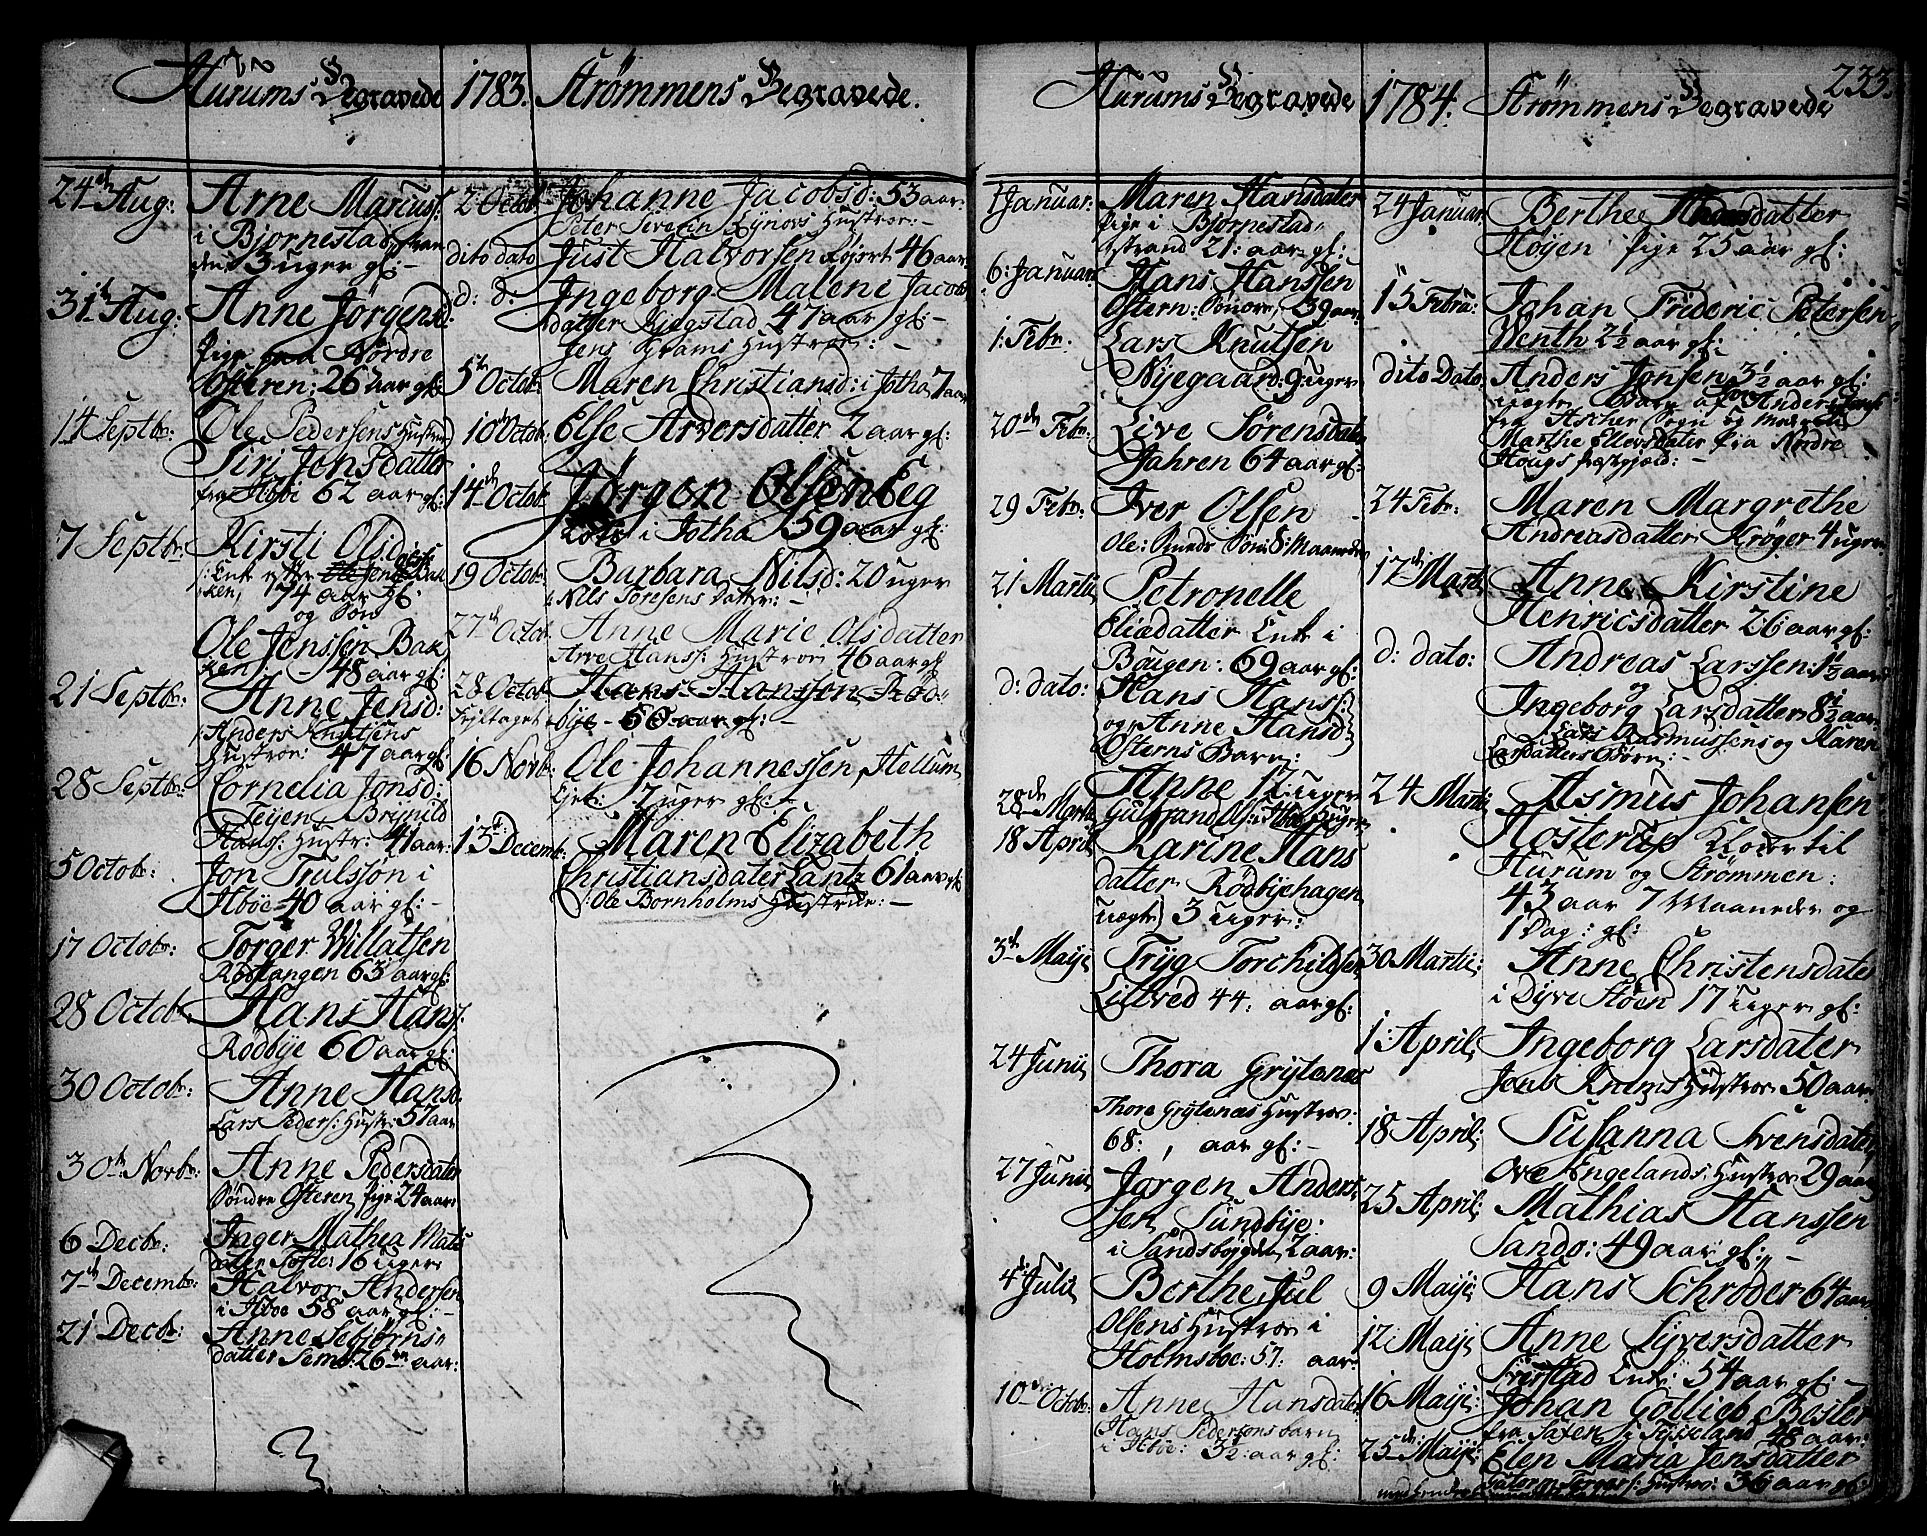 Hurums Begravede 1783. Strømmens Begravede.
24de Aug: Arne Mariuss:
i Bjørnestad
3 uger gl:
31te Aug: Anne Jørgensd:
Pige paa Nordre
Østeren: 26 aar gl:
14 Septbr: Ole Pedersens Hustrue
Siri Jonsdatter
fra Aböe 62 aar gl:
7 Septbr: Kirsti Olsd:
Enke efter Bak
ken, 74 aar gl:
og Søn
Ole Jenssen Bak
ken: 48 aar gl:
21 Septbr: Anne Jensd:
Anders Knutsens
Hustroe: 47 aar gl:
28 Septbr: Cornelia Jonsd:
Teijen Brijnild
Hanss: Hustr: 41 aar:
5 Octob: Jon Trulssøn i
Aböe 40 aar gl:
17 Octob: Torger Willatsen
Rødtangen 63 aar gl:
28 Octob: Hans Hanss:
Rødbije 60 aar gl:
30 Octob: Anne Hansd:
Lars Peders: Hustr: 57 aar
30te Novbr: Anne Pedersdater
Søndre Østeren pige 24 aar
6 Decbr: Inger Mathea Mats
datter Tofte: 16 uger
7de Decembr: Halvor Andersen
i Aböe 58 aar gl:
21 Decbr: Anne Sebjørns
datter Sems: 26 aar:
2 Octob: Johanne Jacobsd: 53 aar
Peter Siverin Hustroe:
dito dato Just Halvorsen Røjert 46 aar
d: d: Ingeborg Malene Jacobs
datter Kiegstad 47 aar gl:
Jens Krams Hustroe:
5te Octob: Maren Christiansd: i Jotha 7 aar
10de Octob: Else Arversdatter 2 aar gl:
14de Octob: Jørgen Olsen Eeg
Lods i Jotha 59 aar gl:
19 Octob: Barbara Nilsd: 20 uger
Nils Toresens Datter:
27de Octob: Anne Marie Olsdatter
Arve Hanss: Hustroe 46 aar gl
28 Octob: Hans Hanssen Rød
bije 60 aar gl:
16 Novb: Ole Johannessen, Hellum
Ejet: 7 uger gl:
13de Decemb: Maren Elizabeth
Christiansdater Lantz 61 aar gl
Ole Bornholms Hustrue:
Hurums Begravede 1784. Strømmens Begravede
233.
1 Januar: Maren Hansdater
Pige i Bjørnestad
strand 21: aar gl:
6: Januar: Hans Hanssen
Østern: 59 aar
1: Febr. Lars Knutsen
Nijegaard: 9 uger
20de Febr: Live Sørensdat
Jahren 64 aar gl:
29 Febr: Iver Olsen
Ole: Søn: 8: Maaneder
21 Martii Petronelle
Eliædatter Enke i
Bougen: 69 aar gl:
d: dato: Hans Hanss:
og Anne Hansd:
Østerns Barn:
28de Martii Anne 12 uger
18 April Karine Hans
datter Rødbijehagen
uægte 3 uger:
3de Maij Tryg Torchildsen
Lilbred 44: aar gl:
24 Junii Thora Grijtenæs
Thore Grijtenæs Hustroe:
68:, aar gl:
27 Junii Jørgen Anders
sen Sundbije:
i Sandsbøjgden 2 aar:
4de Julii Berthe Jul
Olsens Hustroe i
Holmsboe: 57: aar
10 Octob: Anne Hansdater
Hans Pedersens barn
i Aböe: 3½: aar gl:
24 Januar: Berthe Andersdatter
Høijen Pige 25 aar gl:
15 Februa: Johan Frideric Petersen
Wenth 2½ aar gl:
dito Dato Anders Jonsen 3½ aar gl:
uægte Barn af
fra Ascher Sogn og
Marthe Ellevsdatter fra Nordre
Hougs Præstgjæld:
24 Febr: Maren Margrethe
Andreasdatter Krøger 4 uger
17de Marti Anne Kirstine
Henricsdatter 26 aar gl:
d: dato: Andreas Larssen: 1½ aar
og
Ingeborg Larsdatter 8½ aar
Lars Rasmussens og Karen
Larsdatters Børn:
24 Martii Asmus Johansen
Hosterup Klocer til
Hurum og Strømmen:
43 aar 7 Maaneder og
1 Dag: gl:
30 Martii: Anne Christensdater
i Dyve Støen 17 uger gl:
1: April Ingeborg Larsdater
Jens Krams Hustroe 50 aar
18 April: Susanna Svensdater
Ove Engelands Hustroe 29 aar
25 April: Mathias Hanssen
Sando: 49 aar gl:
9 Maij: Hans Schrøder 64 aar
12 Maij: Anne Syversdatter
Enke 54 aar gl:
16 Maij: Johan Gottlieb Bester
fra Saxen i Tyskeland 48 aar:
25de Maij: Elen Maria Jensdatter
Hustroe: 36 aar gl: